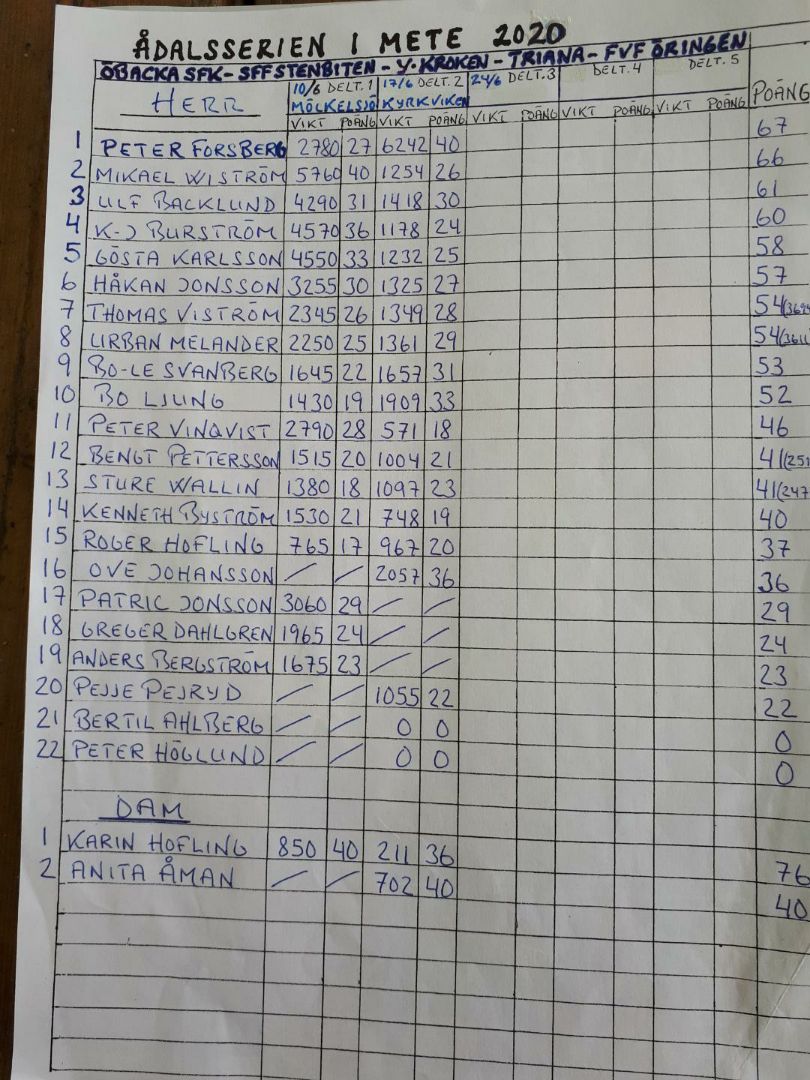 ÅDALSSERIEN I METE 2020
ÖBACKA SFK - SFF STENBITEN - Y. KROKEN - TRIANA - FVF ÖRINGEN
10/6 DELT. 1 17/6 DELT. 2 24/6 DELT. 3 DELT. 4 DELT. 5
HERR MÖCKELSJÖ KYRKVIKEN POÄNG
VIKT POÄNG VIKT POÄNG VIKT POÄNG VIKT POÄNG VIKT POÄNG
1 PETER FORSBERG 2780 27 6242 40 67
2 MIKAEL WISTRÖM 5760 40 1254 26 66
3 ULF BACKLUND 4290 31 1418 30 61
4 K-J BURSTRÖM 4570 36 1178 24 60
5 GÖSTA KARLSSON 4550 33 1232 25 58
6 HÅKAN JONSSON 3255 30 1325 27 57
7 THOMAS VISTRÖM 2345 26 1349 28 54(3694
8 URBAN MELANDER 2250 25 1361 29 54(3611
9 BO-LE SVANBERG 1645 22 1657 31 53
10 BO LJUNG 1430 19 1909 33 52
11 PETER VINQVIST 2790 28 571 18 46
12 BENGT PETTERSSON 1515 20 1004 21 41(251
13 STURE WALLIN 1380 18 1097 23 41(247
14 KENNETH BYSTRÖM 1530 21 748 19 40
15 ROGER HOFLING 765 17 967 20 37
16 OVE JOHANSSON / / 2057 36 36
17 PATRIC JONSSON 3060 29 / / 29
18 GREGER DAHLGREN 1965 24 / / 24
19 ANDERS BERGSTRÖM 1675 23 / / 23
20 PEJJE PEJRYD / / 1055 22 22
21 BERTIL AHLBERG / / 0 0 0
22 PETER HÖGLUND / / 0 0 0
DAM
1 KARIN HOFLING 850 40 211 36 76
2 ANITA ÅMAN / / 702 40 40